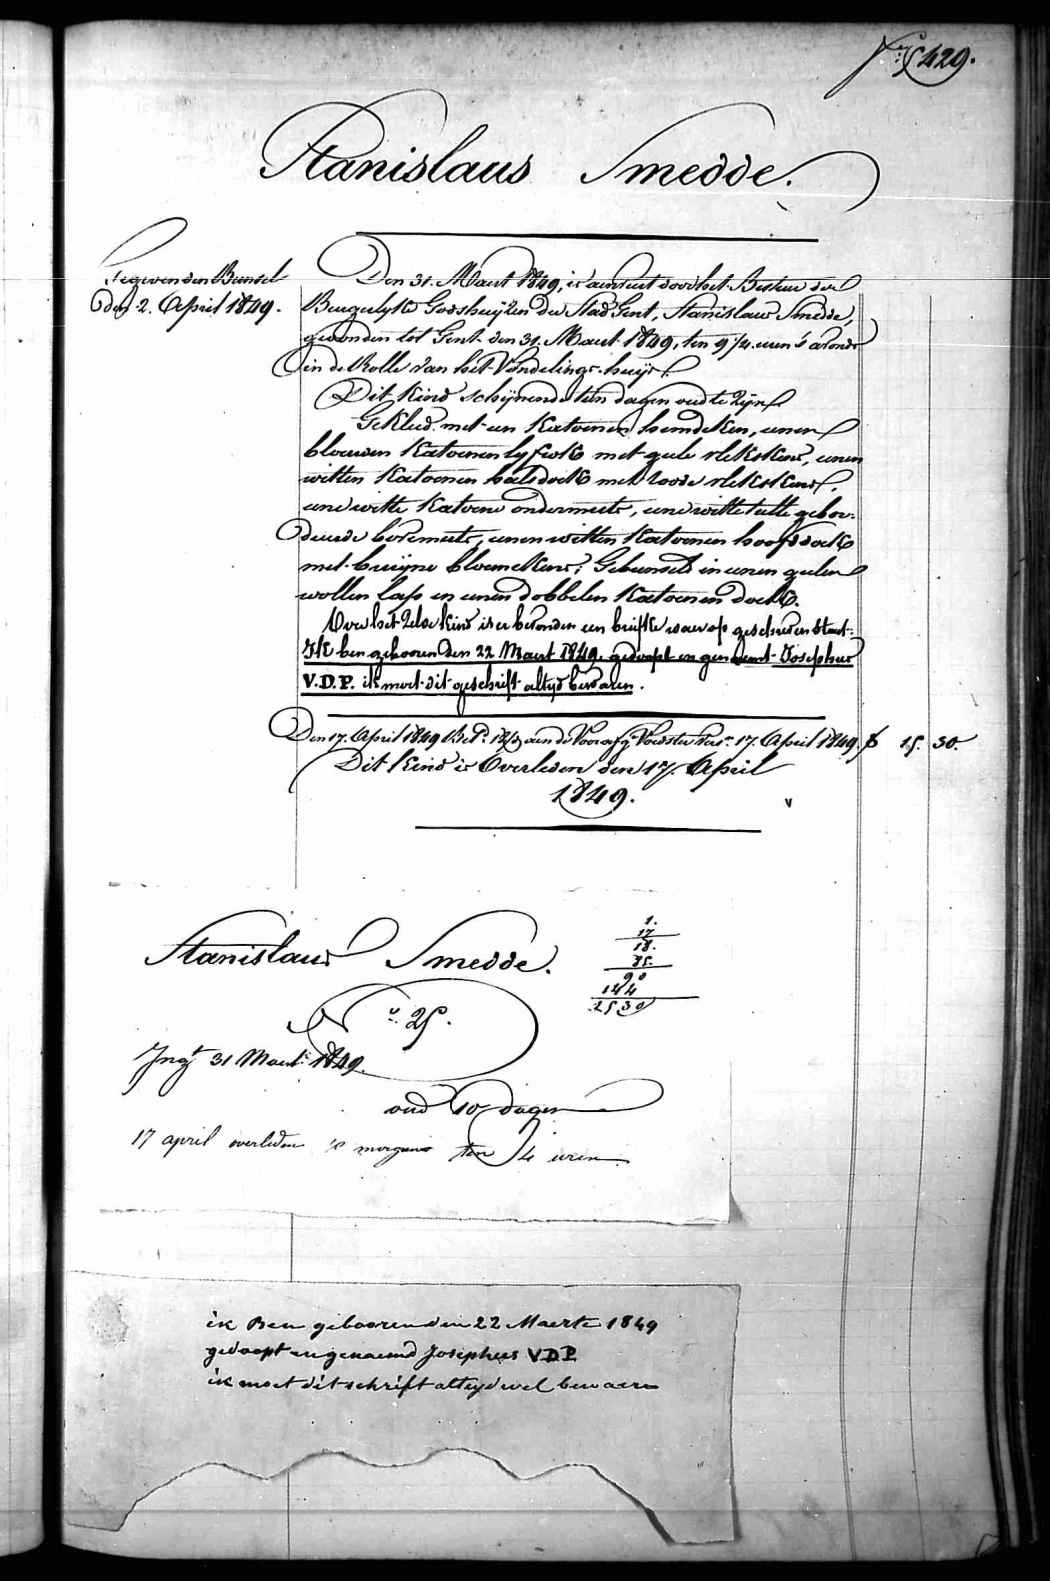 N.º 5429.
Stanislaus Smedde.
Gegeven den Bunsel
den 2. April 1849.
Den 31. Maert 1849, is aenveert door het Bestuer der
Burgerlyke Godshuyzen der Stad Gent, Stanislaus Smedde,
gevonden tot Gent den 31. Maert 1849, ten 9 1/4 uren 's avonds
in de Rolle van het Vondelings-huys.
Dit Kind schynende tien dagen oud te zyn
Gekleed met een Katoenen hemdeken, eenen
blauwen Katoenen lyfrok met geele vlekskens, eenen
witten Katoenen halsdoek met roode vlekskens,
eene witte Katoene ondermuts, eene witte tulle gebor-
duerde bovemuts, eenen witten Katoenen hoofddoek
met bruyne bloemekens; Gebunseld in eenen geelen
wollen lap en eenen dobbelen Katoenen doek.
Over het zelve kind is er bevonden een briefke waer op geschreven staet:
Ik ben geboren den 22 Maert 1849, gedoopt en genaemt Josephus
V.D.P. ik moet dit geschrift altyd bewaren.
Den 17. April 1849 aen de Voedster 17. April 1849. 15. 30.
Dit kind is Overleden den 17. April
1849.
Stanislaus Smedde.
1.
17
18.
85.
90
144
1530
N.º 25.
Ingt 31 Maert 1849.
oud 10 dagen
17 april overleden 's morgens ten 4 uren
ik Ben gebooren den 22 Maerte 1849
gedoopt en genaemd Josephus V.D.P.
ik moet dit schrift alteyd wel bewaeren